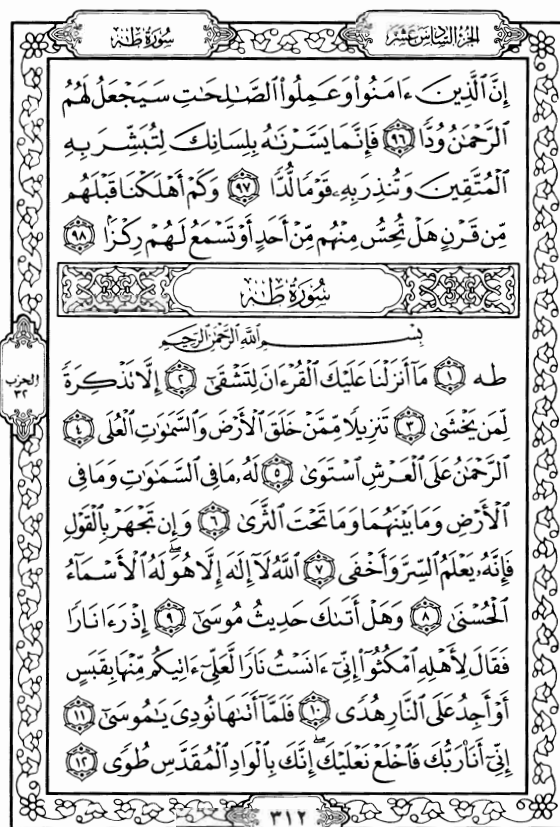 الجزء السادس عشر
سورة طه
إِنَّ ٱلَّذِينَ ءَامَنُوا۟ وَعَمِلُوا۟ ٱلصَّـٰلِحَـٰتِ سَيَجْعَلُ لَهُمُ
ٱلرَّحْمَـٰنُ وُدًّا ٩٦ فَإِنَّمَا يَسَّرْنَـٰهُ بِلِسَانِكَ لِتُبَشِّرَ بِهِ
ٱلْمُتَّقِينَ وَتُنذِرَ بِهِۦ قَوْمًا لُّدًّا ٩٧ وَكَمْ أَهْلَكْنَا قَبْلَهُم
مِّن قَرْنٍ هَلْ تُحِسُّ مِنْهُم مِّنْ أَحَدٍ أَوْ تَسْمَعُ لَهُمْ رِكْزًۢا ٩٨
سُورَةُ طه
بِسْمِ ٱللَّهِ ٱلرَّحْمَـٰنِ ٱلرَّحِيمِ
طه ١ مَآ أَنزَلْنَا عَلَيْكَ ٱلْقُرْءَانَ لِتَشْقَىٰٓ ٢ إِلَّا تَذْكِرَةً
لِّمَن يَخْشَىٰ ٣ تَنزِيلًا مِّمَّنْ خَلَقَ ٱلْأَرْضَ وَٱلسَّمَـٰوَٰتِ ٱلْعُلَى ٤
ٱلرَّحْمَـٰنُ عَلَى ٱلْعَرْشِ ٱسْتَوَىٰ ٥ لَهُۥ مَا فِى ٱلسَّمَـٰوَٰتِ وَمَا فِى
ٱلْأَرْضِ وَمَا بَيْنَهُمَا وَمَا تَحْتَ ٱلثَّرَىٰ ٦ وَإِن تَجْهَرْ بِٱلْقَوْلِ
فَإِنَّهُۥ يَعْلَمُ ٱلسِّرَّ وَأَخْفَى ٧ ٱللَّهُ لَآ إِلَـٰهَ إِلَّا هُوَ ۖ لَهُ ٱلْأَسْمَآءُ
ٱلْحُسْنَىٰ ٨ وَهَلْ أَتَىٰكَ حَدِيثُ مُوسَىٰٓ ٩ إِذْ رَءَا نَارًا
فَقَالَ لِأَهْلِهِ ٱمْكُثُوٓا۟ إِنِّىٓ ءَانَسْتُ نَارًا لَّعَلِّىٓ ءَاتِيكُم مِّنْهَا بِقَبَسٍ
أَوْ أَجِدُ عَلَى ٱلنَّارِ هُدًى ١٠ فَلَمَّآ أَتَىٰهَا نُودِىَ يَـٰمُوسَىٰٓ ١١
إِنِّىٓ أَنَا۠ رَبُّكَ فَٱخْلَعْ نَعْلَيْكَ ۖ إِنَّكَ بِٱلْوَادِ ٱلْمُقَدَّسِ طُوًى ١٢
الحزب
٣٢
٣١٢